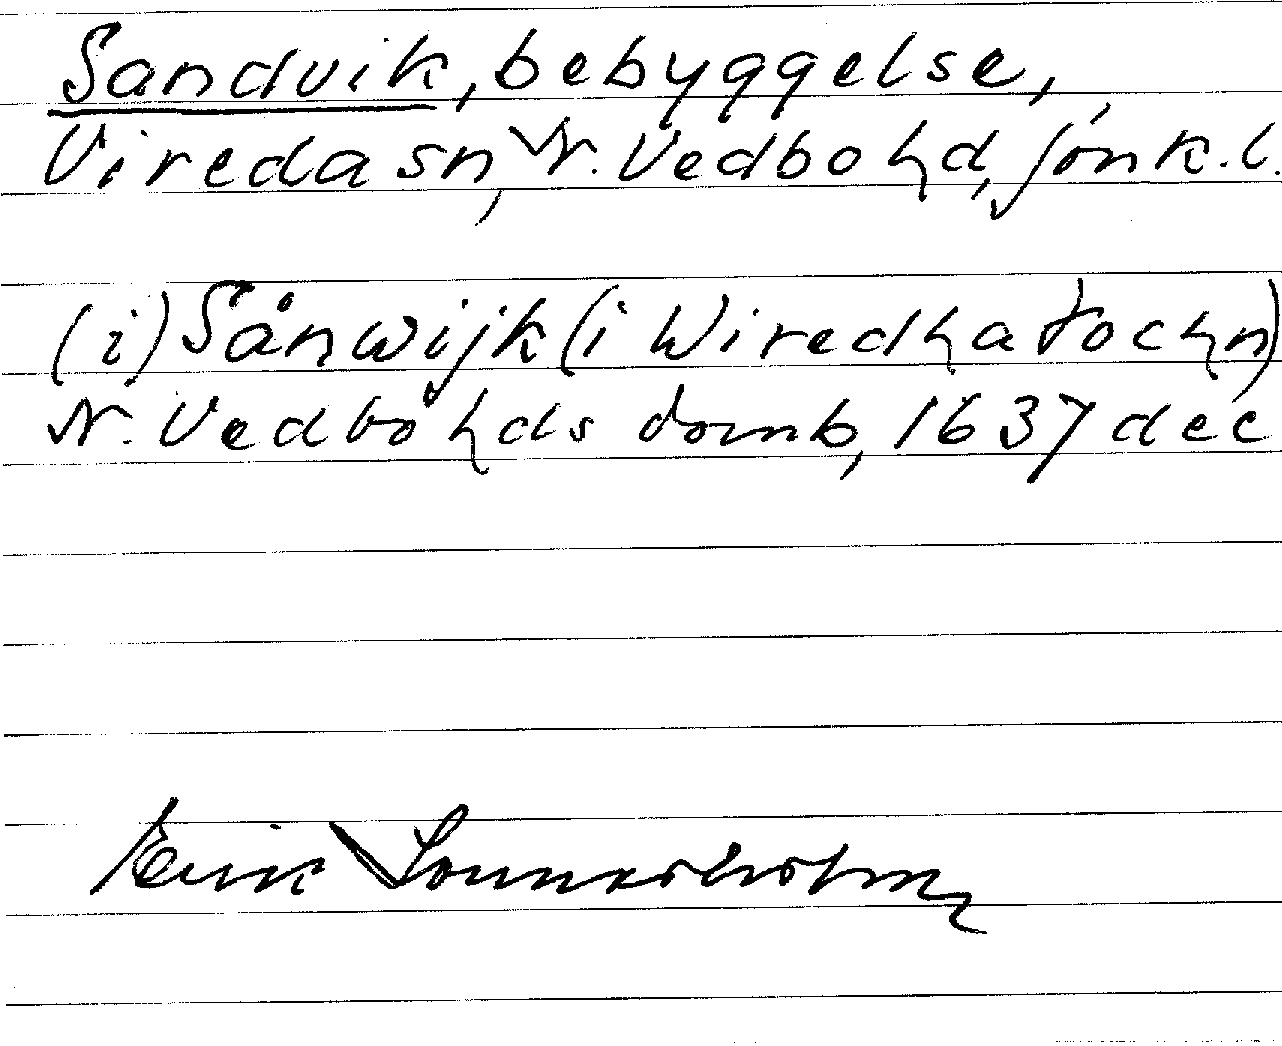 Sandvik, bebyggelse,
Vireda sn, N. Vedbo hd, Jönk. l.
(i) Sånwijk (i Wiredha sochn)
N. Vedbo hds domb, 1637 dec
Erik